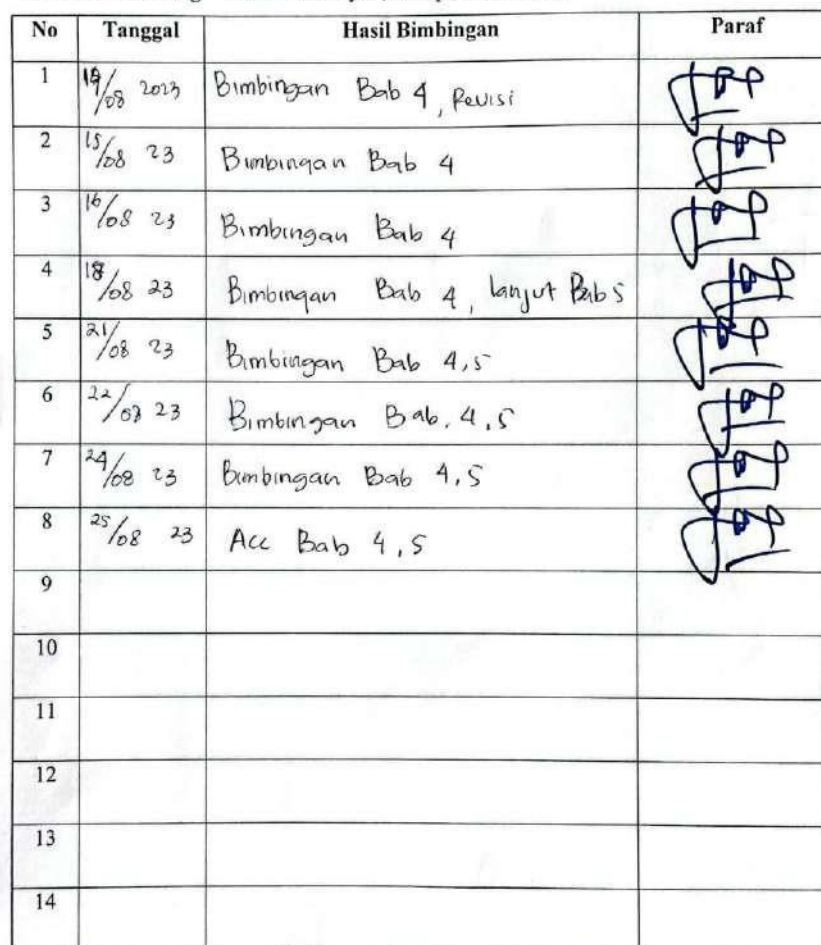 No Tanggal Hasil Bimbingan Paraf
1 14/08 2023 Bimbingan Bab 4, Revisi
2 15/08 23 Bimbingan Bab 4
3 16/08 23 Bimbingan Bab 4
4 18/08 23 Bimbingan Bab 4, lanjut Bab 5
5 21/08 23 Bimbingan Bab 4,5
6 22/08 23 Bimbingan Bab. 4,5
7 24/08 23 Bimbingan Bab 4,5
8 25/08 23 Acc Bab 4,5
9
10
11
12
13
14